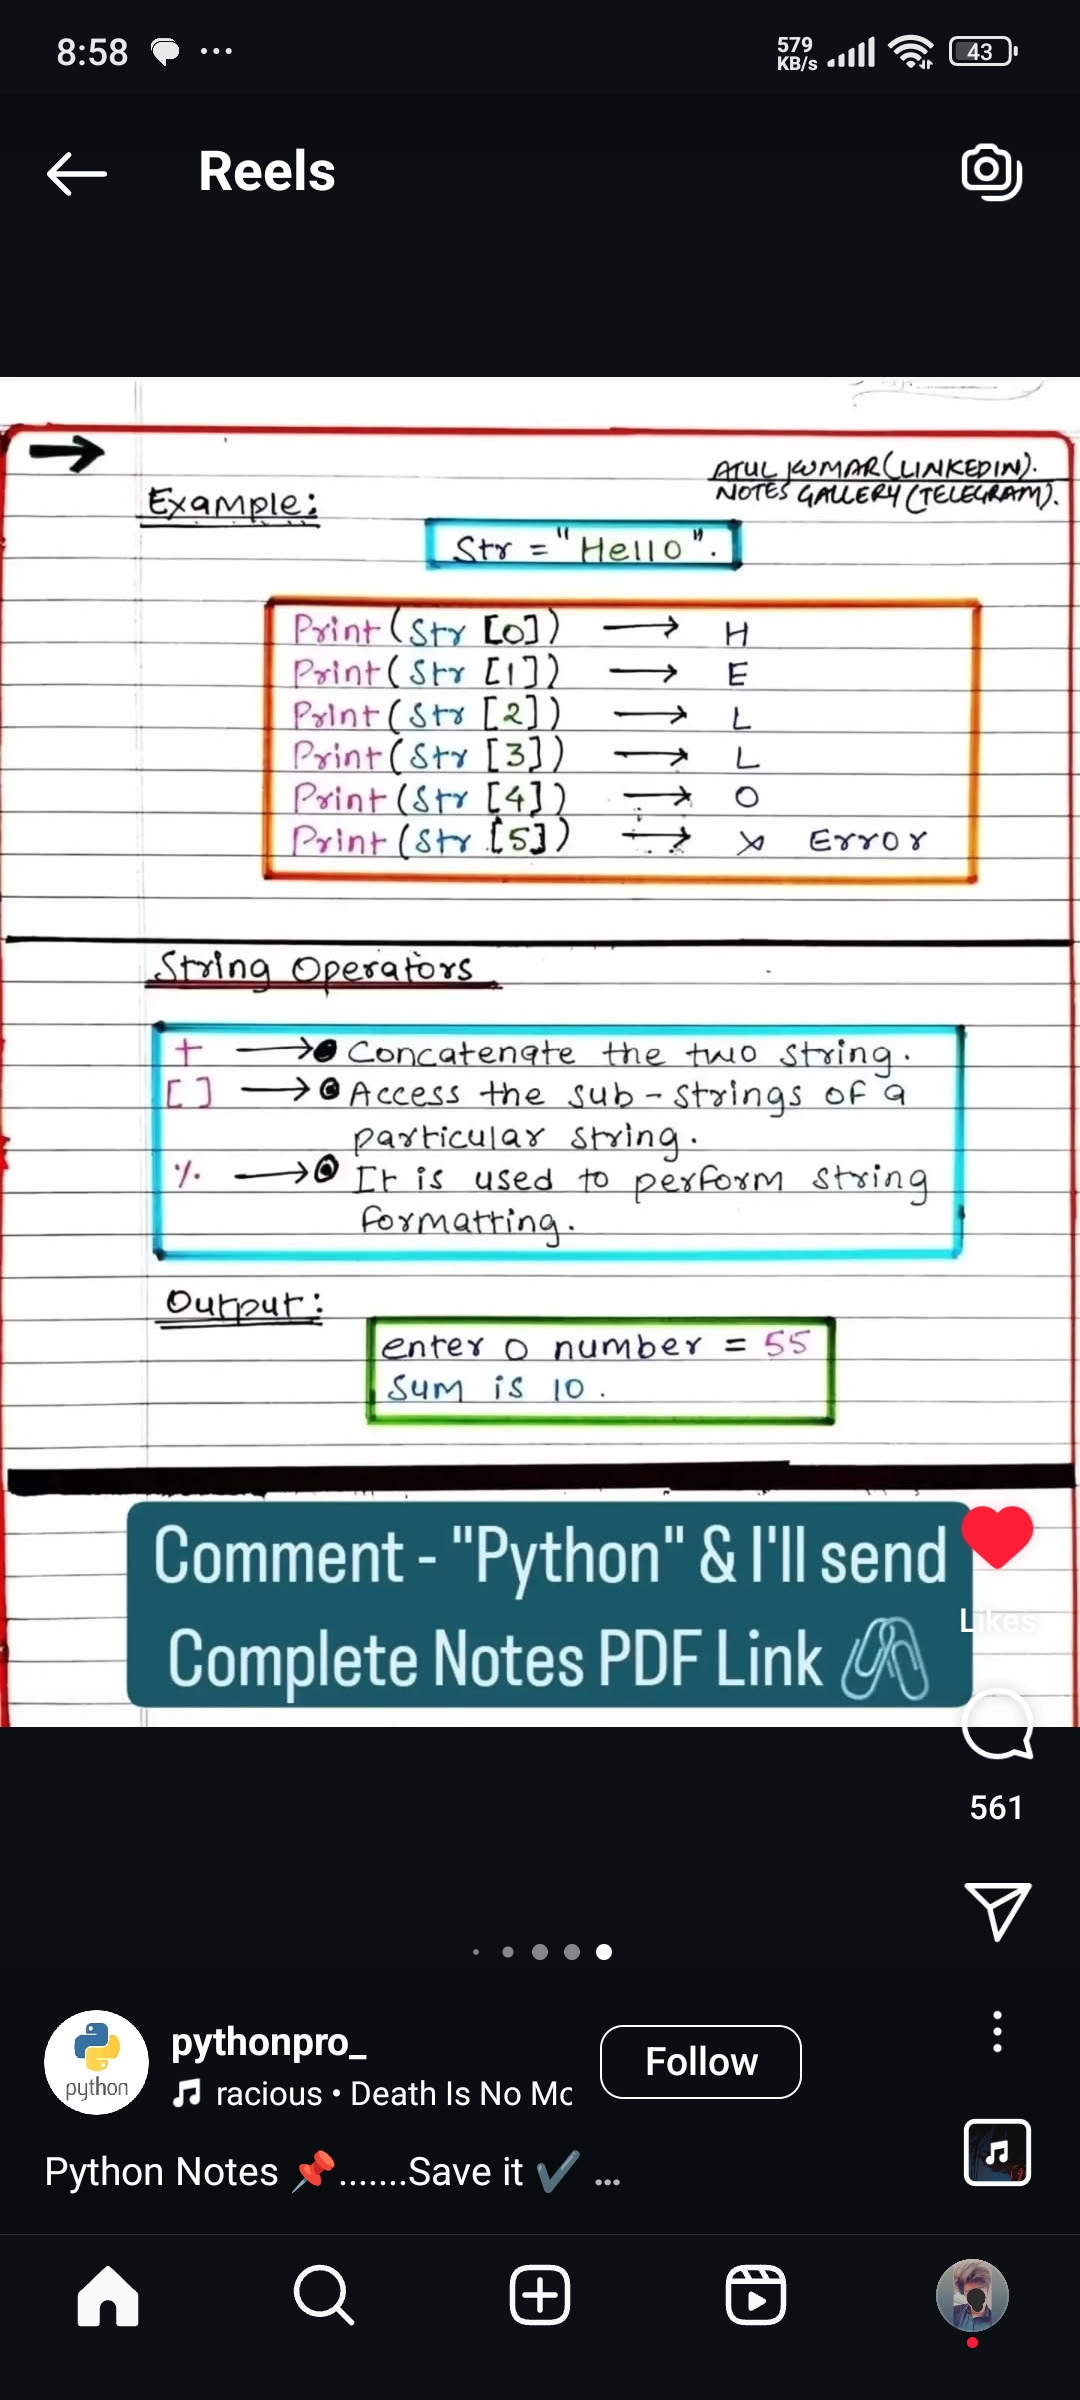 8:58
579
KB/s
43
Reels
ATUL KUMAR (LINKEDIN).
NOTES GALLERY (TELEGRAM).
Example:
Str = "Hello".
Print (Str [0]) → H
Print (Str [1]) → E
Print (Str [2]) → L
Print (Str [3]) → L
Print (Str [4]) → O
Print (Str [5]) → x Error
String Operators
+ → Concatenate the two string.
[ ] → Access the sub-strings of a
particular string.
% → It is used to perform string
formatting.
Output:
enter o number = 55
Sum is 10.
Comment - "Python" & I'll send
Complete Notes PDF Link
Likes
561
python
pythonpro_
racious • Death Is No Mo
Follow
Python Notes 📌.......Save it ✔️ ...